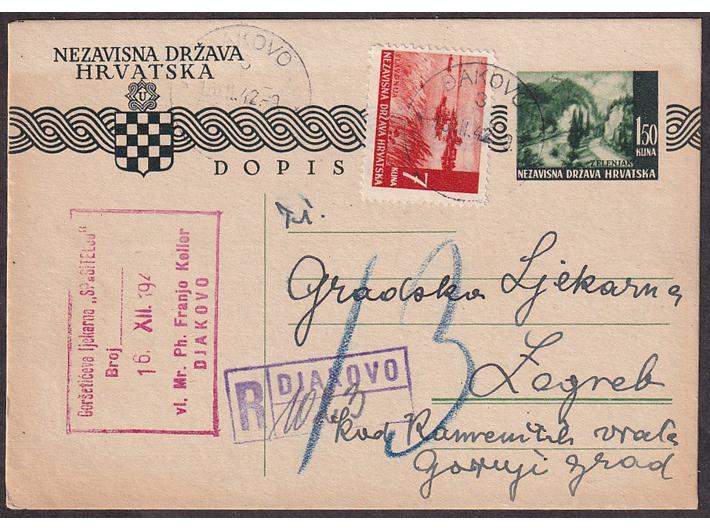 NEZAVISNA DRŽAVA
HRVATSKA
U
DOPIS
ĐAKOVO
ĐAKOVO
NEZAVISNA DRŽAVA HRVATSKA
7
KUNA
1.50
KUNA
ZELENJAK
NEZAVISNA DRŽAVA HRVATSKA
Goršetićeva ljekarna „SPASITELJU"
Broj
16. XII. 194
vl. Mr. Ph. Franjo Keller
DJAKOVO
R
DJAKOVO
13
Gradska Ljekarna
Zagreb
kod Kamenitih vrata
Gornji grad